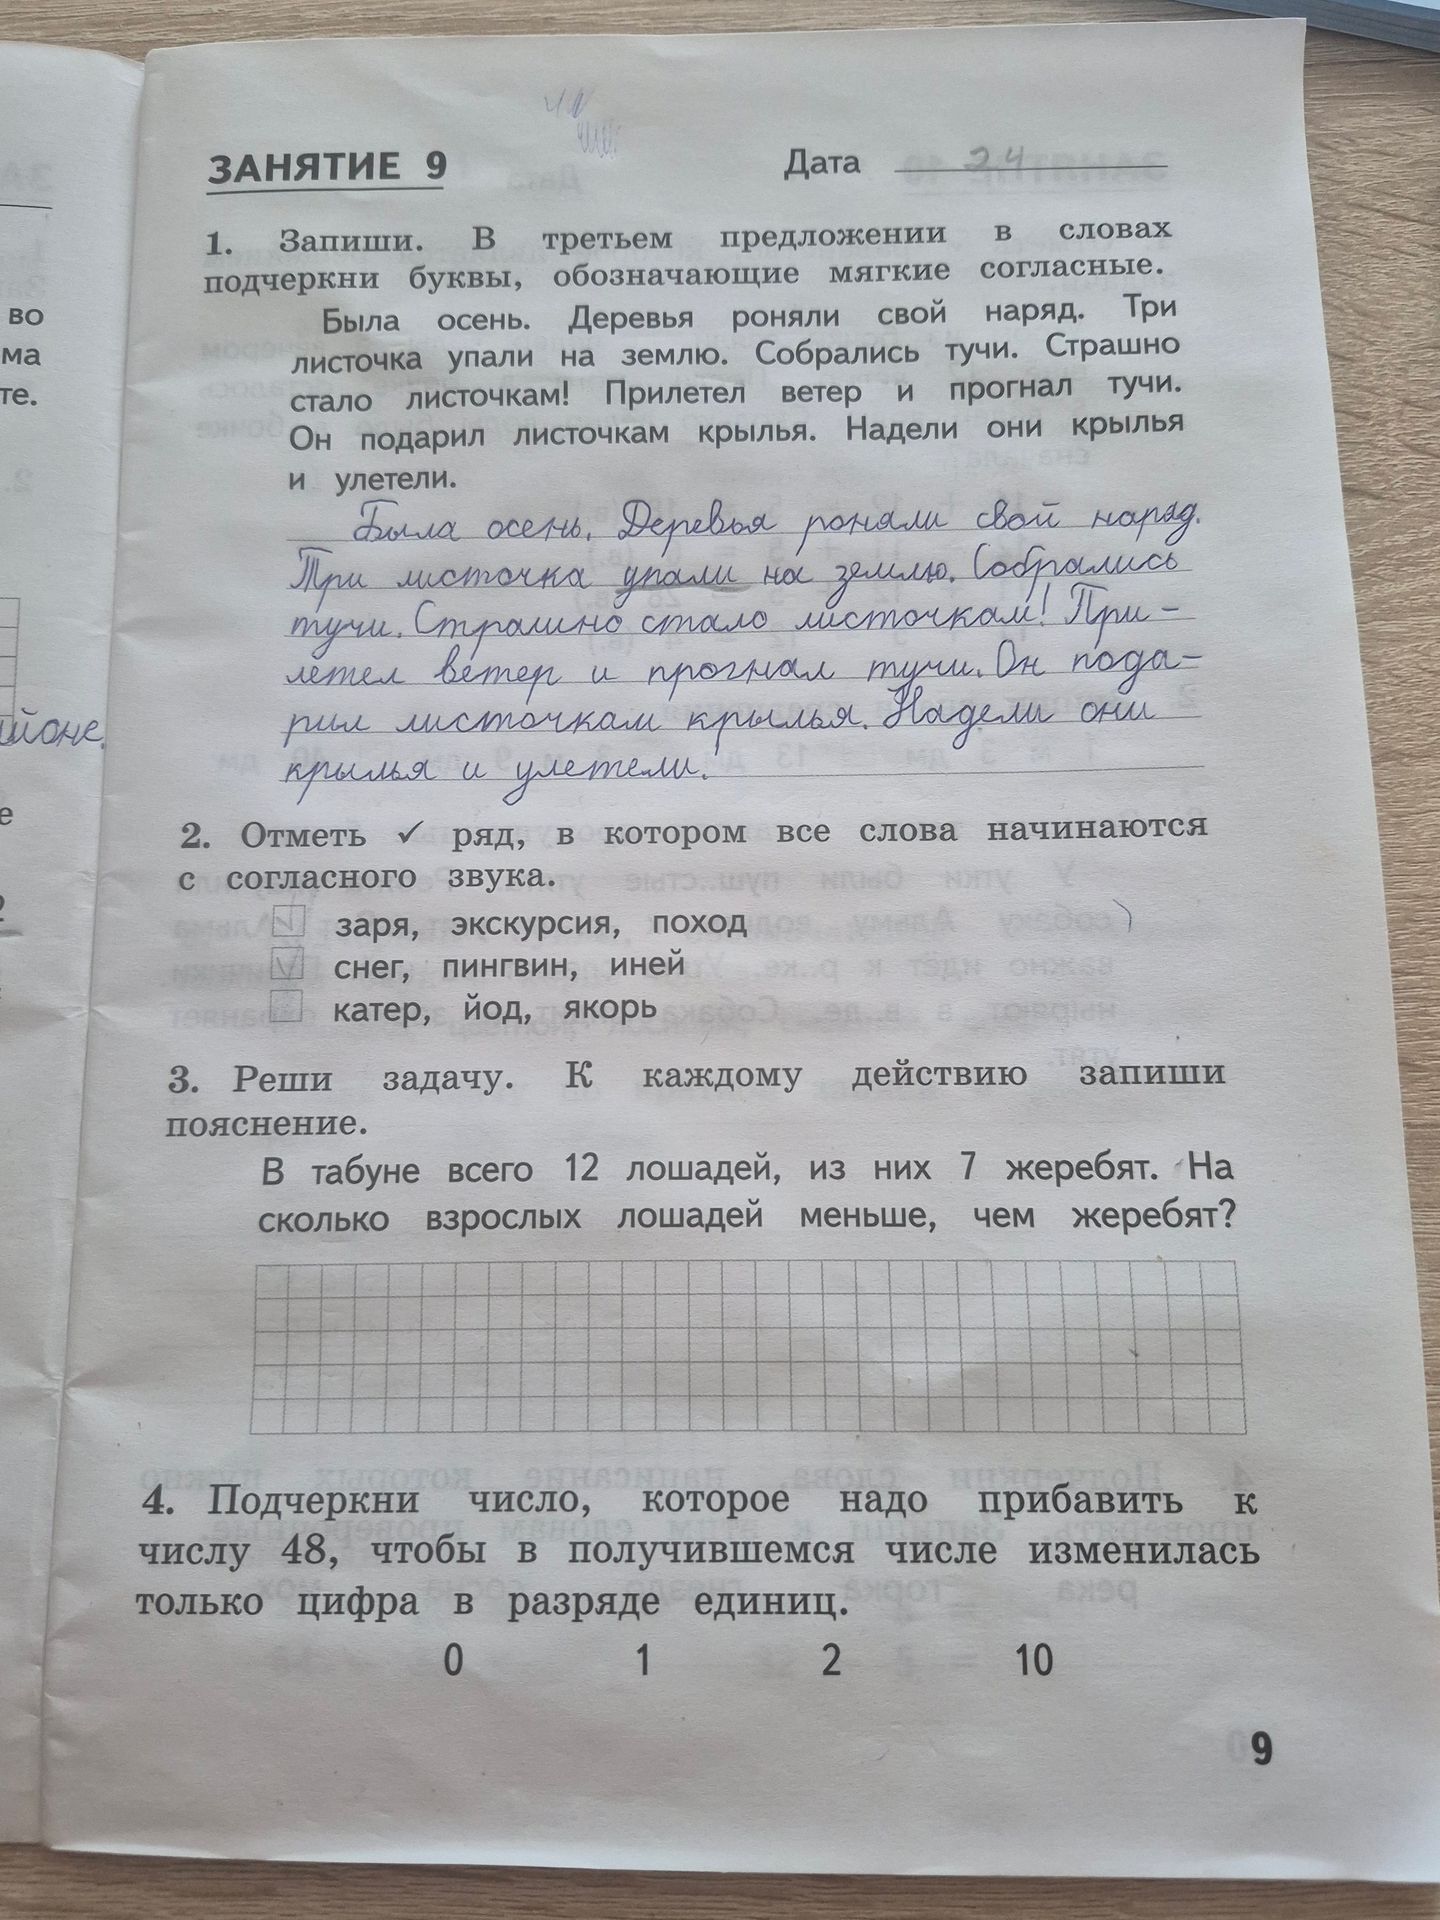 ЗАНЯТИЕ 9
Дата 24
1. Запиши. В третьем предложении в словах
подчеркни буквы, обозначающие мягкие согласные.
Была осень. Деревья роняли свой наряд. Три
листочка упали на землю. Собрались тучи. Страшно
стало листочкам! Прилетел ветер и прогнал тучи.
Он подарил листочкам крылья. Надели они крылья
и улетели.
Была осень. Деревья роняли свой наряд.
Три листочка упали на землю. Собрались
тучи. Страшно стало листочкам! При-
летел ветер и прогнал тучи. Он пода-
рил листочкам крылья. Надели они
крылья и улетели.
2. Отметь ✓ ряд, в котором все слова начинаются
с согласного звука.
заря, экскурсия, поход
снег, пингвин, иней
катер, йод, якорь
3. Реши задачу. К каждому действию запиши
пояснение.
В табуне всего 12 лошадей, из них 7 жеребят. На
сколько взрослых лошадей меньше, чем жеребят?
4. Подчеркни число, которое надо прибавить к
числу 48, чтобы в получившемся числе изменилась
только цифра в разряде единиц.
0 1 2 10
9
во
ма
те.
йоне.
е